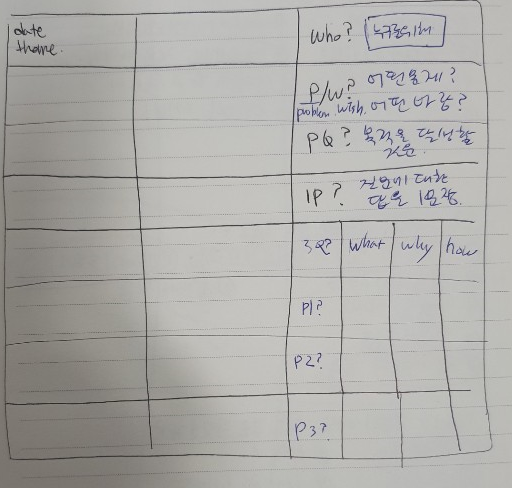 date
theme.
Who? 누구를위해
P/W? 어떤문제?
problem, wish, 어떤 바람?
PQ? 목적을 달성할
질문
1P? 질문에 대한
답을 1문장.
3Q? what why how
P1?
P2?
P3?